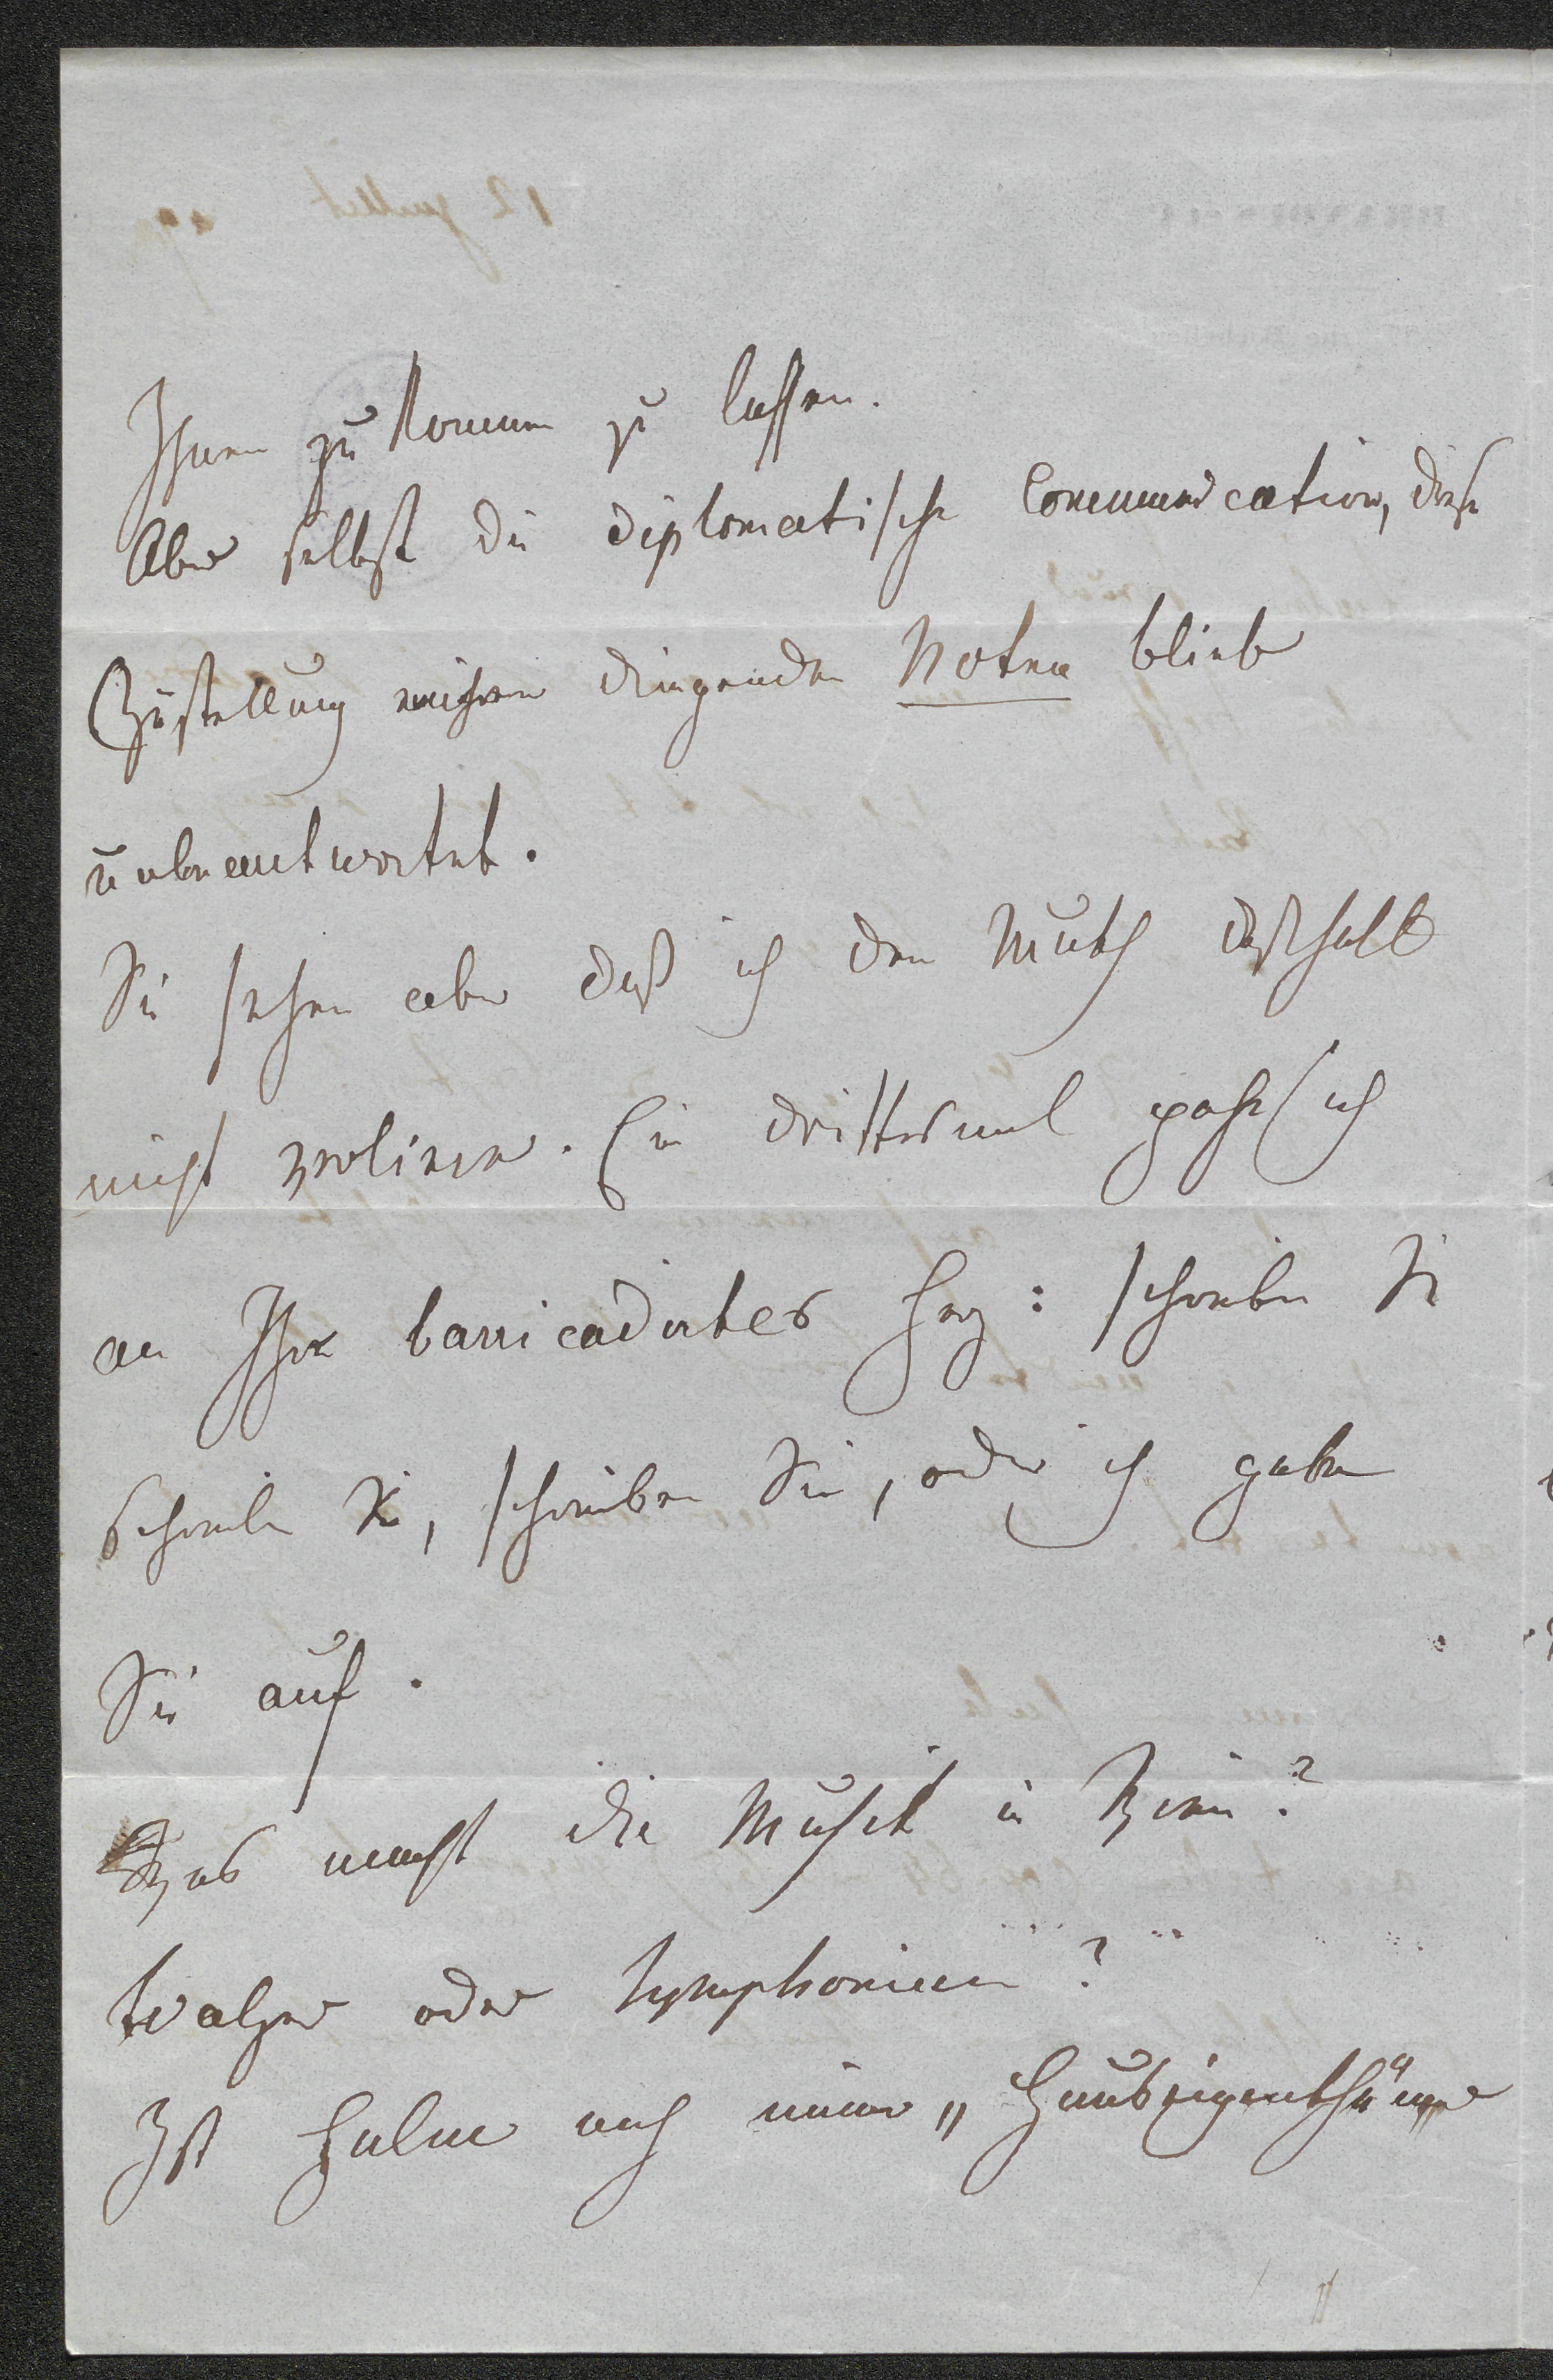 Ihnen zu kommen zu lassen.
Aber selbst die diplomatische Communication, diese
Zustellung meiner dringenden Noten blieb
unbeantwortet.
Sie sehen aber daß ich den Muth deßhalb
nicht verliere. Ein drittesmal poche ich
an Ihr barricadirtes Herz: schreiben Sie
schreiben Sie, schreiben Sie, oder ich gebe
Sie auf.
Was macht die Musik in Wien?
Walzer oder Symphonieen?
Ist Halm noch immer „Hauseigenthümer